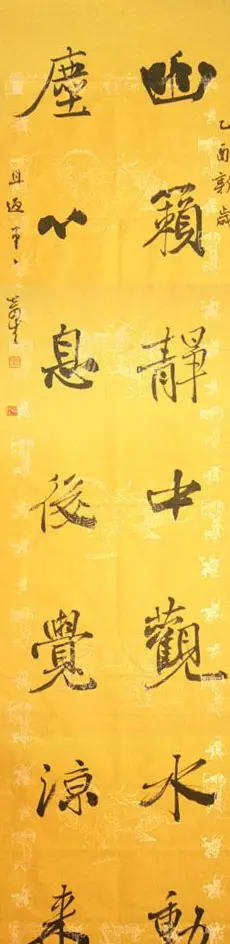 乙酉新歲
幽籟靜中觀水動
塵心息後覺涼來